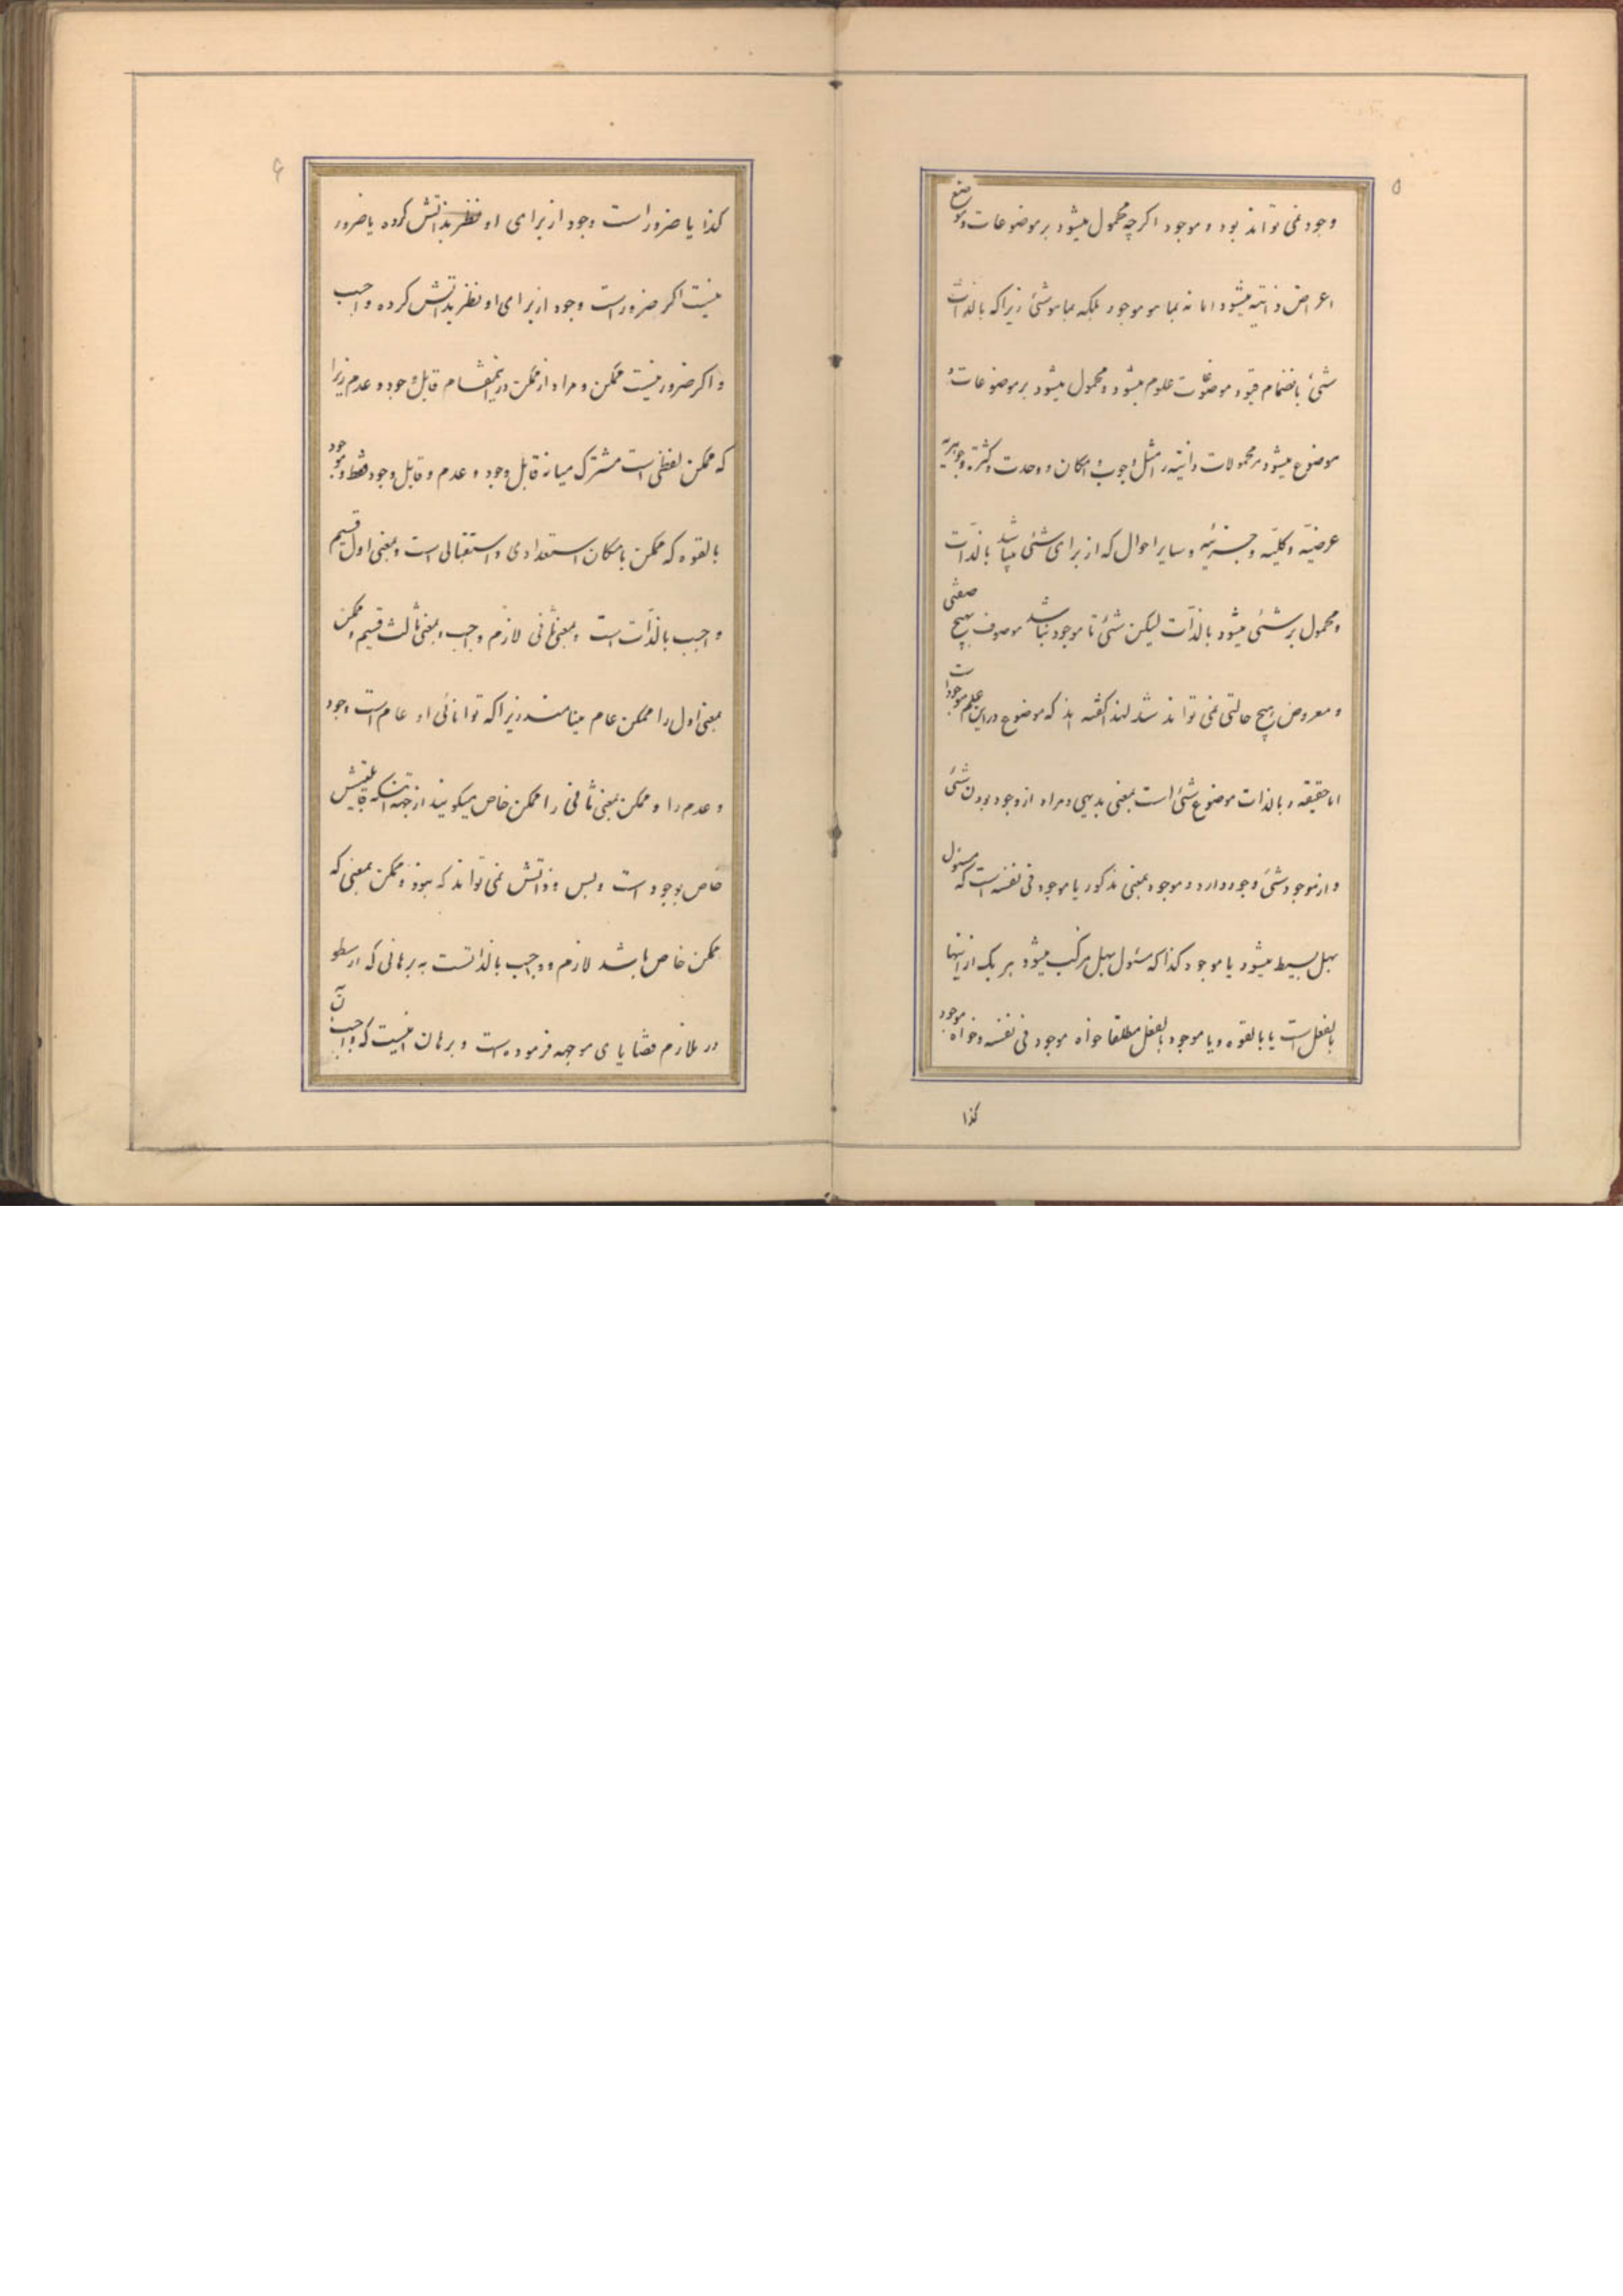 ۵
وجود نمی تواند بود و موجود اکرچه محمول میشود بر موضوعات و موضوع
اعراض ذاتیه میشود اما نه بما هو موجود بلکه بما هو شئ زیرا که بالذات
شئ بانضمام قیود موضوعات علوم میشود و محمول میشود بر موضوعات و
موضوع میشود مر محمولات ذاتیه را مثل وجوب و امکان و وحدت و کثرة و جوهریه
عرضیّه و کلیّه و جزئیه و سایر احوال که از برای شئی میباشد بالذّات
و محمول بر شئی میشود بالذّات لیکن شئ تا موجود نباشد موصوف بهیچ صفتی
و معروض هیچ حالتی نمی تواند شد لهذا کفته اند که موضوع در این علم موجود است
اما حقیقه و بالذات موضوع شئ است بمعنی بدیهی و مراد از وجود بودن شئ
و از موجود شئ وجود دارد و موجود بمعنی مذکور یا موجود فی نفسه است که مسئول
بهل بسیط میشود یا موجود کذا که مسئول بهل مرکب میشود هر یک از اینها
بالفعل است یا بالقوه و یا موجود بالفعل مطلقا خواه موجود فی نفسه و خواه موجود
کذا
۶
کذا یا ضرور است وجود از برای او نظر بذاتش کرده یا ضرور
نیست اکر ضرور است وجود از برای او نظر بذاتش کرده واجب
و اکر ضرور نیست ممکن و مراد از ممکن در این قابل وجود و عدم زیرا
که ممکن لفظی است مشترک میانه قابل وجود و عدم و قابل وجود فقط و موجود
بالقوه که ممکن بامکان استعدادی و استقبالی است و بمعنی اول قسیم
واجب بالذّات است و بمعنی ثانی لازم واجب و بمعنی ثالث قسیم و ممکن
بمعنی اول را ممکن عام مینامند زیرا که توانائی او عام است وجود
و عدم را و ممکن بمعنی ثانی را ممکن خاص میکویند از جهة آنکه قابلیتش
خاص بوجود است و بس و ذاتش نمی تواند که نبود و ممکن بمعنی که
ممکن خاص باشد لازم واجب بالذاتست به برهانی که ارسطو
در تلازم قضایای موجهه فرموده است و برهان اینست که واجب آن